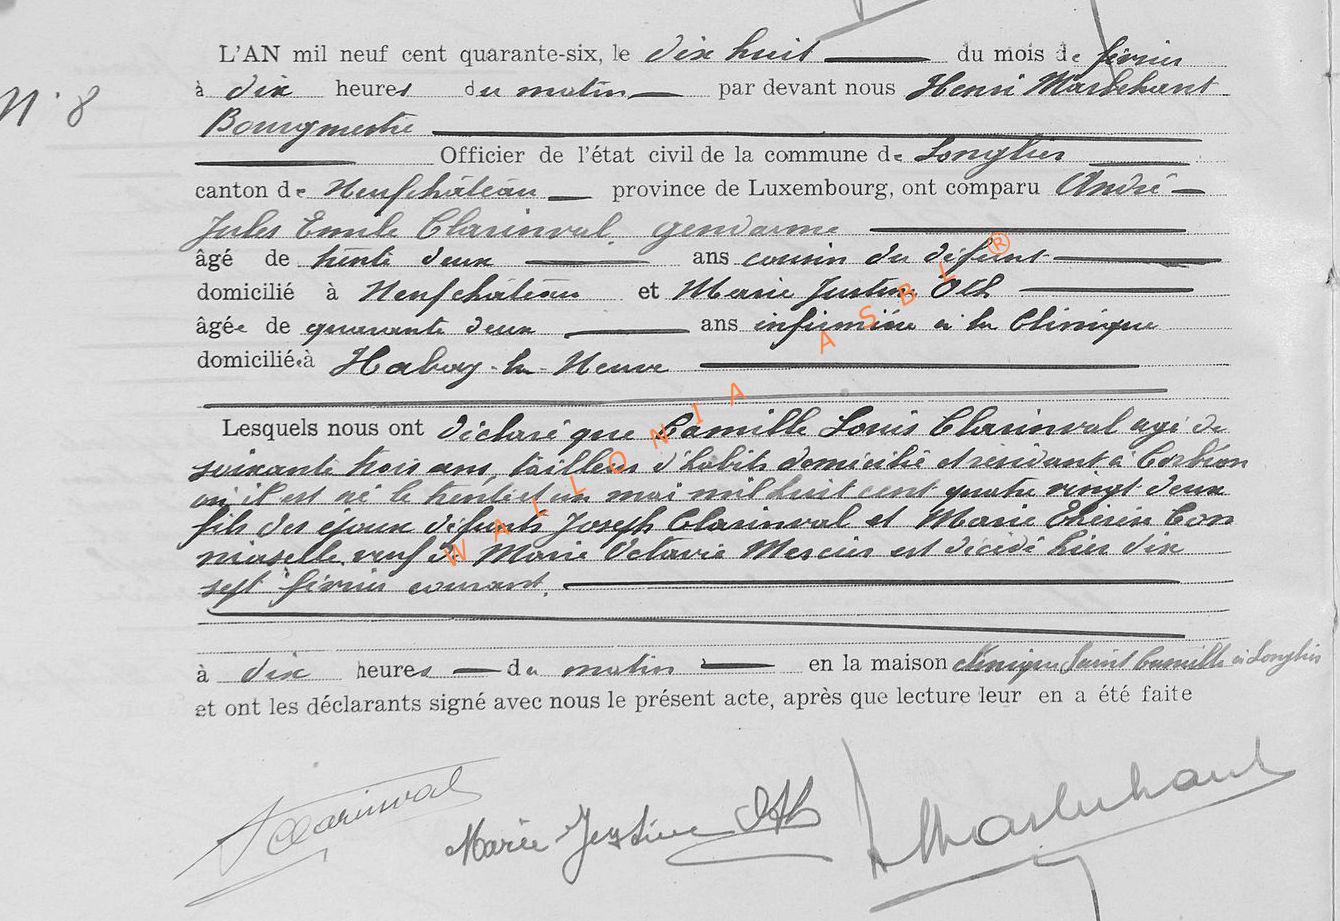 L'AN mil neuf cent quarante-six, le dix huit du mois de février
N° 8
à dix heures du matin par devant nous Henri
Bourgmestre
Officier de l'état civil de la commune de Longlier
canton de Neufchâteau province de Luxembourg, ont comparu André
Jules Emile Clarinval gendarme
âgé de trente deux ans cousin du défunt
domicilié à Neufchâteau et Marie Justine Oth
âgée de quarante deux ans infirmière à la Clinique
domiciliée à Habay-la-Neuve
Lesquels nous ont déclaré que Camille Louis Clarinval agé de
soixante trois ans, tailleur d'habits domicilié et résidant à Corbion
où il est né le trente et un mai mil huit cent quatre vingt deux
fils des époux défunts Joseph Clarinval et Marie
veuf de Marie Octavie Mercier est décédé hier dix
sept février courant.
à dix heures du matin en la maison clinique Saint Camille à Longlier
et ont les déclarants signé avec nous le présent acte, après que lecture leur en a été faite
Clarinval
Marie Justine Oth
WALLONIA ASBL ®